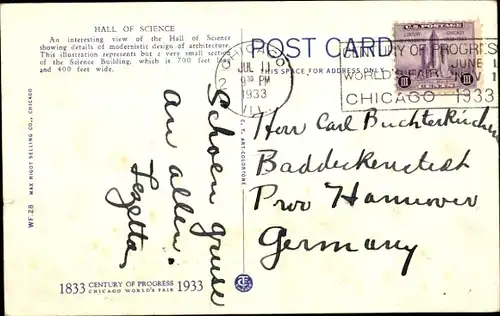 HALL OF SCIENCE
An interesting view of the Hall of Science
showing details of modernistic design of architecture.
This illustration represents but a very small section
of the Science Building, which is 700 feet long
and 400 feet wide.
POST CARD
THIS SPACE FOR ADDRESS ONLY
CHICAGO
JUL 11
9 30 PM
1933
ILL.
CENTURY OF PROGRESS
WORLD'S FAIR
JUNE 1
NOV 1
CHICAGO 1933
U.S. POSTAGE
CENTURY
CHICAGO
III
III
CENTS
Herr Carl Buchterkirchen
Baddeckenstedt
Prov Hannover
Germany
Schoen gruse
an allen.
WF-28 MAX RIGOT SELLING CO., CHICAGO
C. T. ART-COLORTONE
1833 CENTURY OF PROGRESS 1933
CHICAGO WORLD'S FAIR